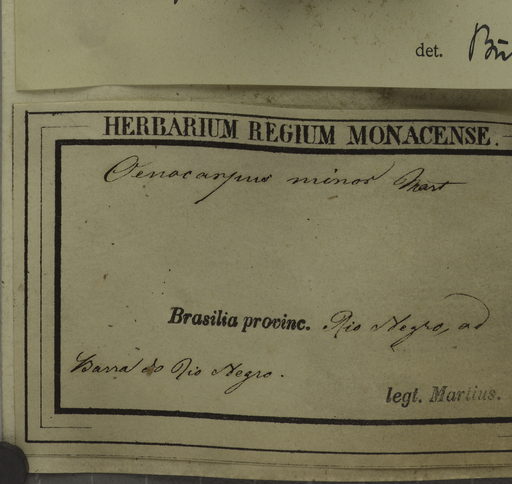 det.
HERBARIUM REGIUM MONACENSE.
Oenocarpus minor Mart
Brasilia provinc. Rio Negro, ad
Barra do Rio Negro.
legt. Martius.